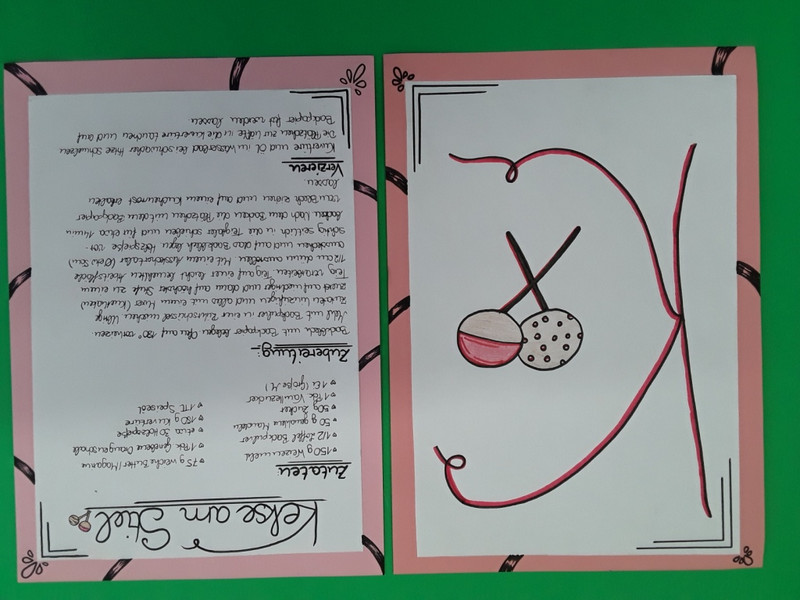 Kekse am Stiel
Zutaten:
150g Weizenmehl
1/2 Backpulver
50 g gemahlene Mandeln
50g Zucker
1 Pck. Vanillezucker
1 Ei (Größe M)
75 g weiche Butter/Magarine
1 Pck. Geriebene Orangenschale
etwa 30 Holzspieße
180 g Kuvertüre
1 TL Speiseöl
Zubereitung:
Backblech mit Backpapier belegen. Ofen auf 180° vorheizen
Mehl mit Backpulver in eine Rührschüssel mischen. Übrige
Zutaten hinzufügen und alles mit einem Mixer (Knethaken)
zuerst auf niedriger und dann auf höchster Stufe zu einem
Teig verarbeiten. Teig auf einer leicht bemehlten Arbeitsfläche
dünn ausrollen. Mit einem
ausstechen und auf das Backblech legen. Holzspieße vor-
sichtig seitlich in die Teigtaler schieben und für etwa 14min
backen. Nach dem Backen die Plätzchen mit dem Backpapier
vom Blech ziehen und auf einem Kuchenrost erkalten
lassen.
Verzieren
Kuvertüre und Öl im Wasserbad bei schwacher Hitze schmelzen
Die Plätzchen zur Hälfte in die Kuvertüre tauchen und auf
Backpapier fest werden lassen
K